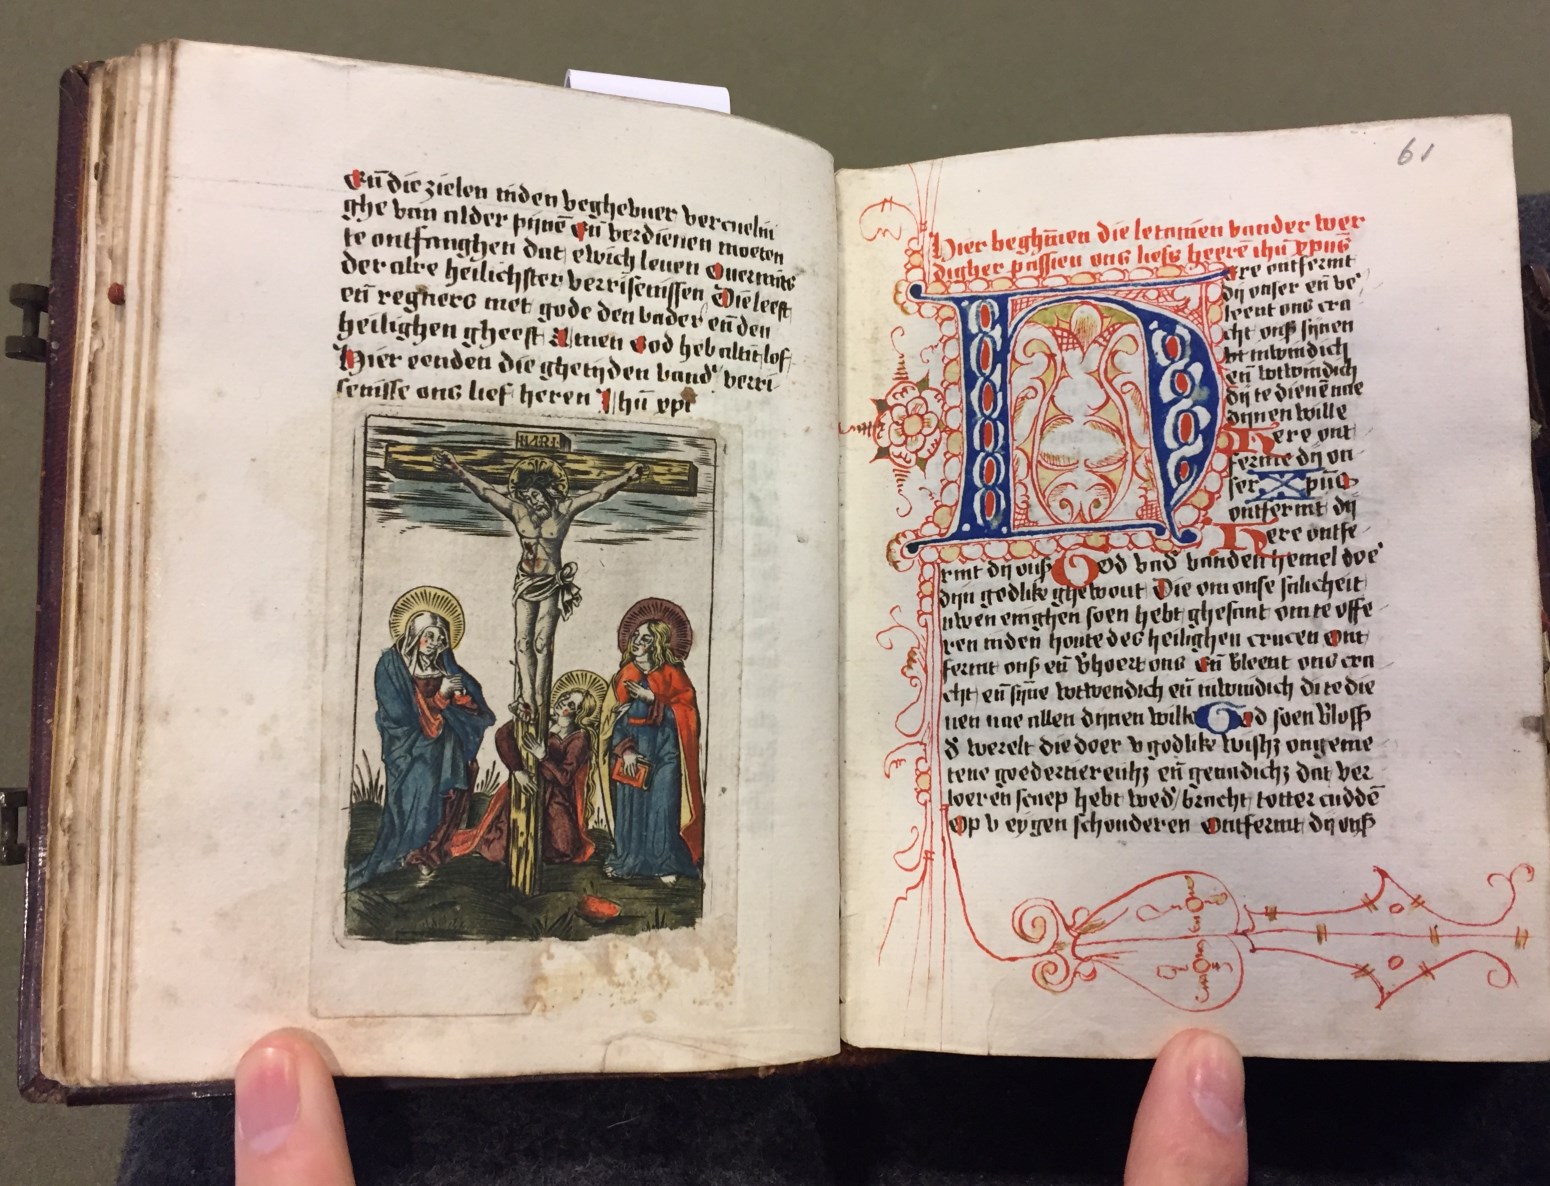 Eñ die zielen inden veghevuer vercuelin
ghe van alder pijnē Eñ verdienen moeten
te ontfanghen dat ewich leuen Ouermits
der alre heilichster verrisenissen Die leeft
eñ regneers met gode den vader eñ den
heilighen gheest Amen God heb altijt lof
Hier eenden die ghetijden vand verri
senisse ons lief heren Ihū xpi
INRI
61
Hier beghīnen die letanien vander wer
digher passien ons liefs heerē ihū xpūs
Here ontfermt
dij onser eñ ve
leent ons cra
cht onß sijnen
bt inwindich
eñ wtwindich
dij te dienē nae
dijnen wille
Here ont
ferme dij on
ser Xpūs
ontfermt dij
Here ontfe
rmt dij onß God vad vanden hemel doe
dijn godlike ghewout Die om onse salicheit
uwen enighen soen hebt ghesant om te offe
ren inden houte des heilighen crucen Ont
fermt onß eñ vhoert ons Eñ vleent ons cra
cht eñ sijne wtwendich eñ inwindich di te die
nen nae allen dijnen wille God soen vloß
d werelt die doer v godlike wish3 ongeme
tene goedertierenh3 eñ genadich3 dat ver
loeren scaep hebt wed bracht totter cuddē
Op v eygen schouderen Ontfermt dij onß